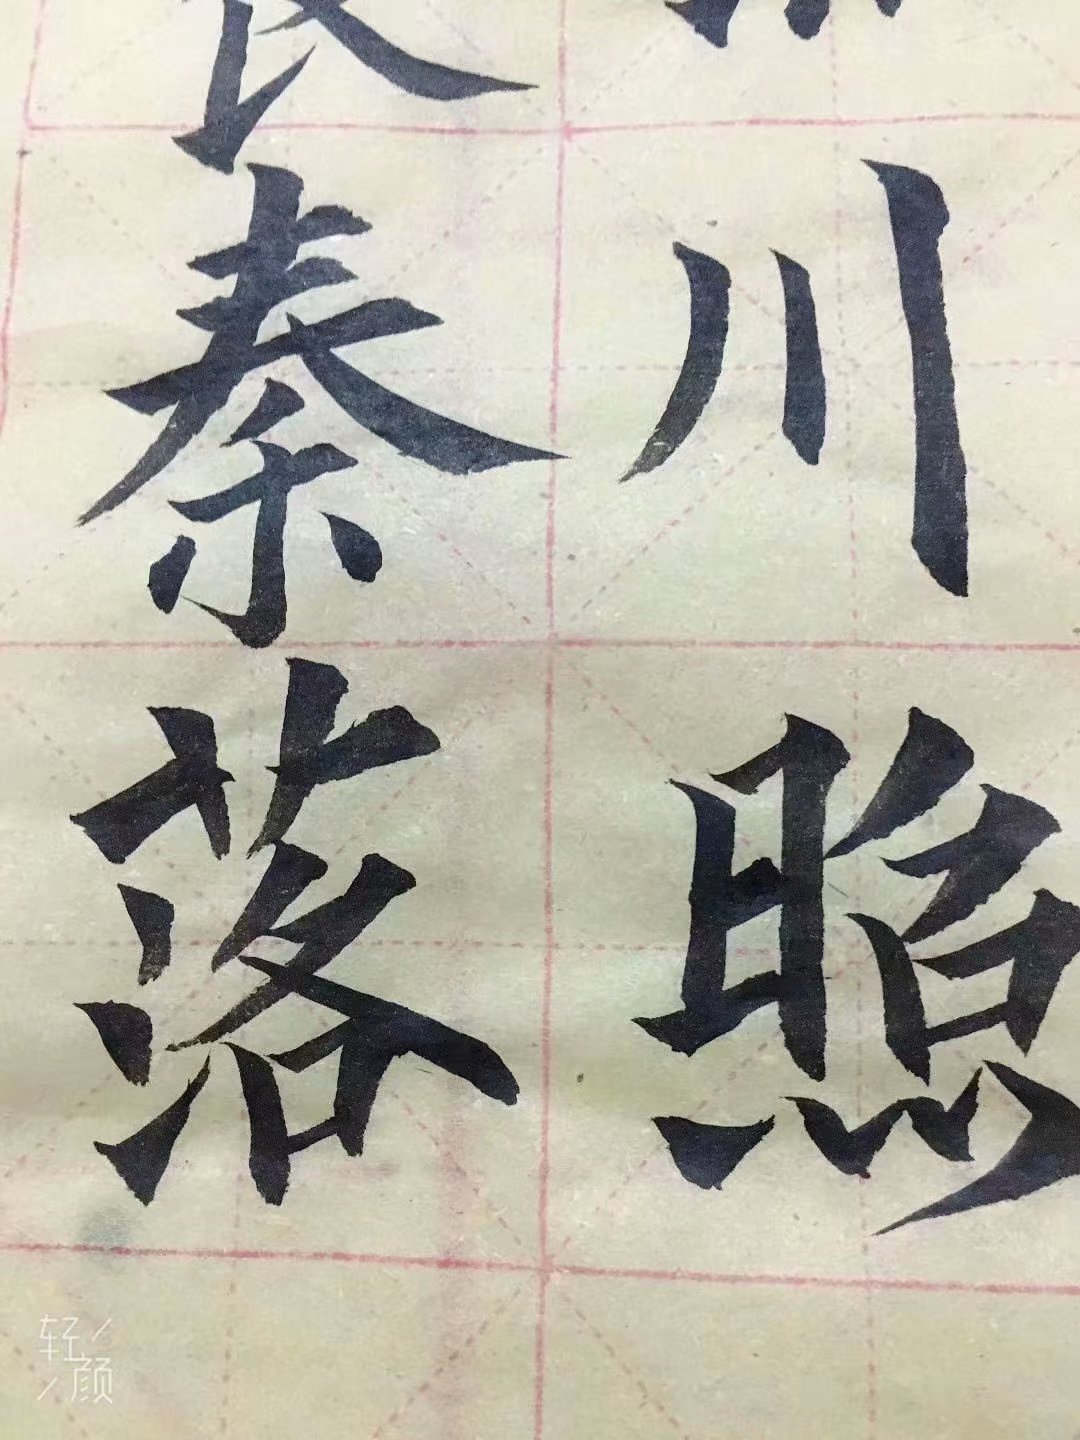 秦川
落照
轻颜